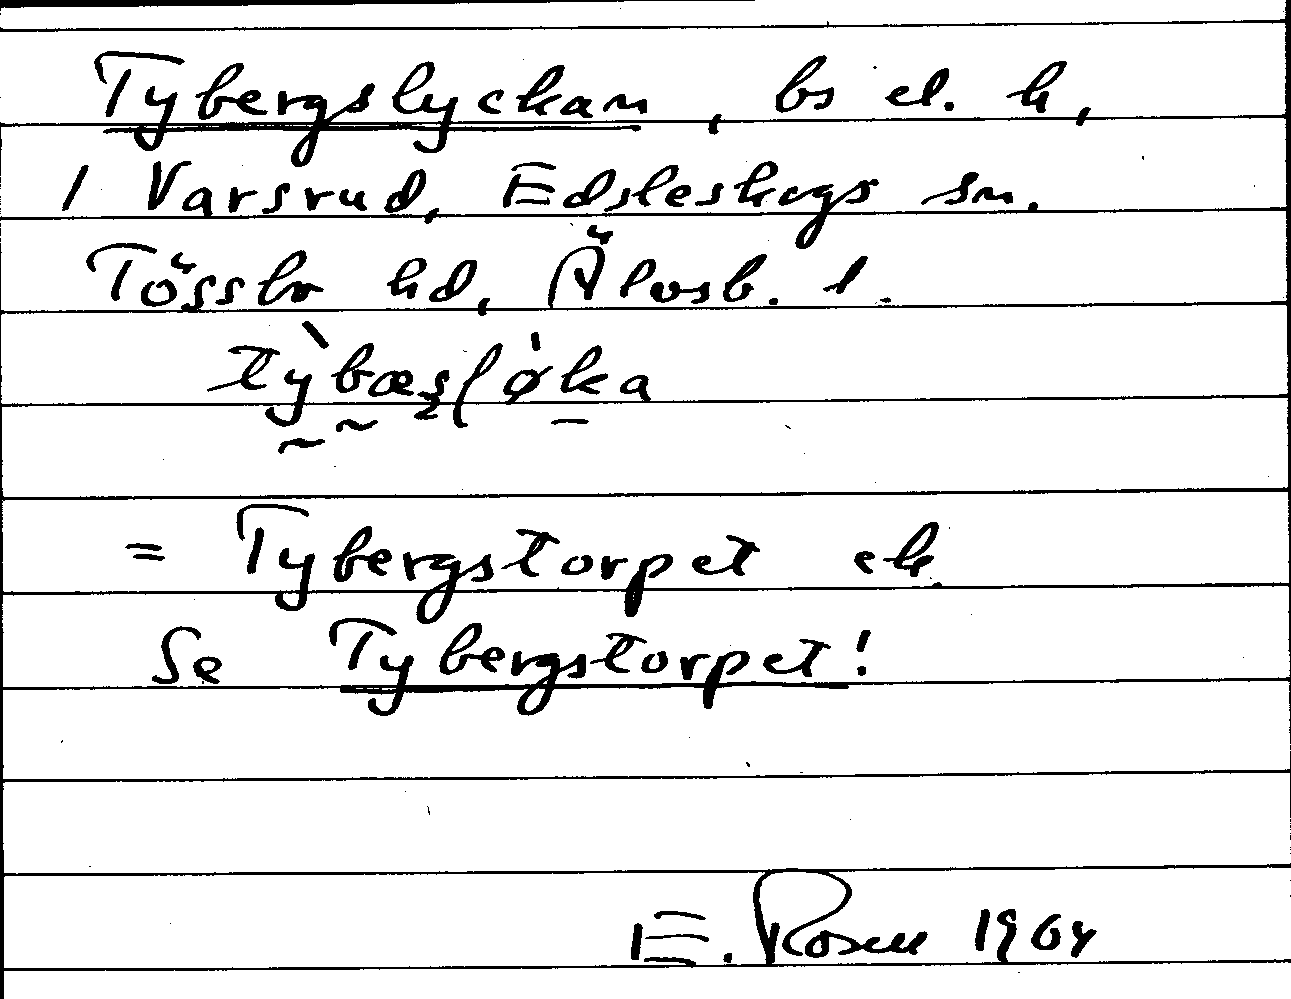 Tybergslyckan, bs el. h,
i Varsrud, Edsleskogs sn.
Tössbo hd, Älvsb. l.
= Tybergstorpet ek.
Se Tybergstorpet!
E. Rosell 1964